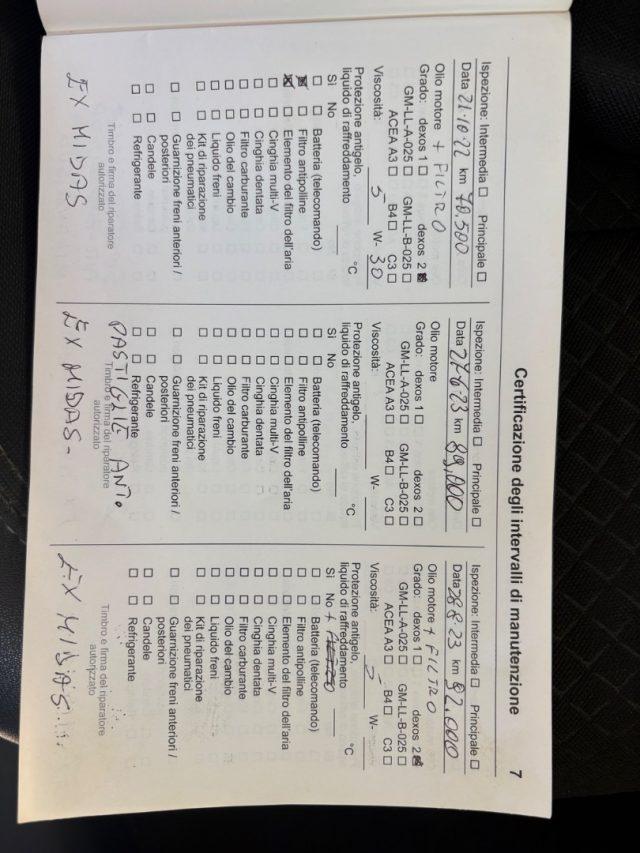 Certificazione degli intervalli di manutenzione 7
Ispezione: Intermedia □ Principale □
Data 21.10.22 km 70.500
Olio motore + FILTRO
Grado: dexos 1 □ dexos 2 ☒
GM-LL-A-025 □ GM-LL-B-025 □
ACEA A3 □ B4 □ C3 □
Viscosità: 5 W- 30
Protezione antigelo,
liquido di raffreddamento °C
Sì No
□ □ Batteria (telecomando)
☒ □ Filtro antipolline
☒ □ Elemento del filtro dell'aria
□ □ Cinghia multi-V
□ □ Cinghia dentata
□ □ Filtro carburante
□ □ Olio del cambio
□ □ Liquido freni
□ □ Kit di riparazione
dei pneumatici
□ □ Guarnizione freni anteriori /
posteriori
□ □ Candele
□ □ Refrigerante
Timbro e firma del riparatore
autorizzato
EX MIDAS
Ispezione: Intermedia □ Principale □
Data 27 6 23 km 80,000
Olio motore
Grado: dexos 1 □ dexos 2 □
GM-LL-A-025 □ GM-LL-B-025 □
ACEA A3 □ B4 □ C3 □
Viscosità: W-
Protezione antigelo,
liquido di raffreddamento °C
Sì No
□ □ Batteria (telecomando)
□ □ Filtro antipolline
□ □ Elemento del filtro dell'aria
□ □ Cinghia multi-V
□ □ Cinghia dentata
□ □ Filtro carburante
□ □ Olio del cambio
□ □ Liquido freni
□ □ Kit di riparazione
dei pneumatici
□ □ Guarnizione freni anteriori /
posteriori
□ □ Candele
□ □ Refrigerante
PASTIGLIE ANT.
Timbro e firma del riparatore
autorizzato
EX MIDAS-
Ispezione: Intermedia □ Principale □
Data 28 8 23 km 82.000
Olio motore + FILTRO
Grado: dexos 1 □ dexos 2 ☒
GM-LL-A-025 □ GM-LL-B-025 □
ACEA A3 □ B4 □ C3 □
Viscosità: 5 W-
Protezione antigelo,
liquido di raffreddamento °C
Sì No +
□ □ Batteria (telecomando)
□ □ Filtro antipolline
□ □ Elemento del filtro dell'aria
□ □ Cinghia multi-V
□ □ Cinghia dentata
□ □ Filtro carburante
□ □ Olio del cambio
□ □ Liquido freni
□ □ Kit di riparazione
dei pneumatici
□ □ Guarnizione freni anteriori /
posteriori
□ □ Candele
□ □ Refrigerante
Timbro e firma del riparatore
autorizzato
EX MIDAS